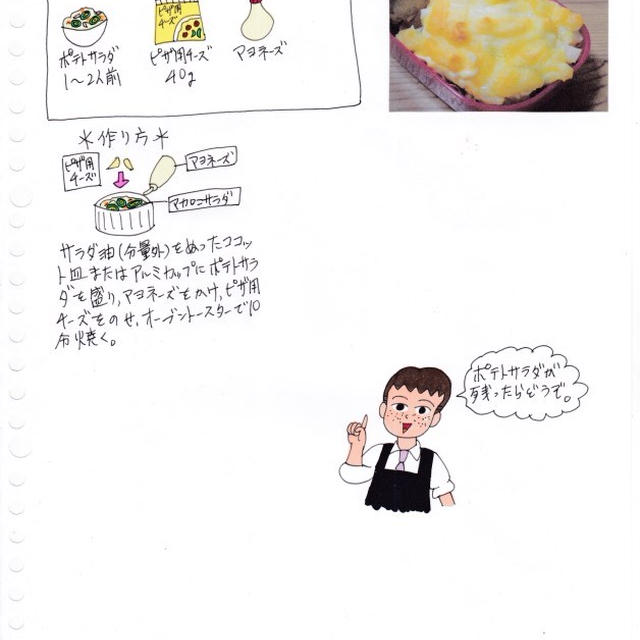 ポテトサラダ
1〜2人前
ピザ用
チーズ
ピザ用チーズ
40g
マヨネーズ
*作り方*
ピザ用
チーズ
マヨネーズ
マカロニサラダ
サラダ油(分量外)をぬったココッ
ト皿またはアルミカップにポテトサラ
ダを盛り,マヨネーズをかけ,ピザ用
チーズをのせ,オーブントースターで10
分焼く。
ポテトサラダが
残ったらどうぞ。